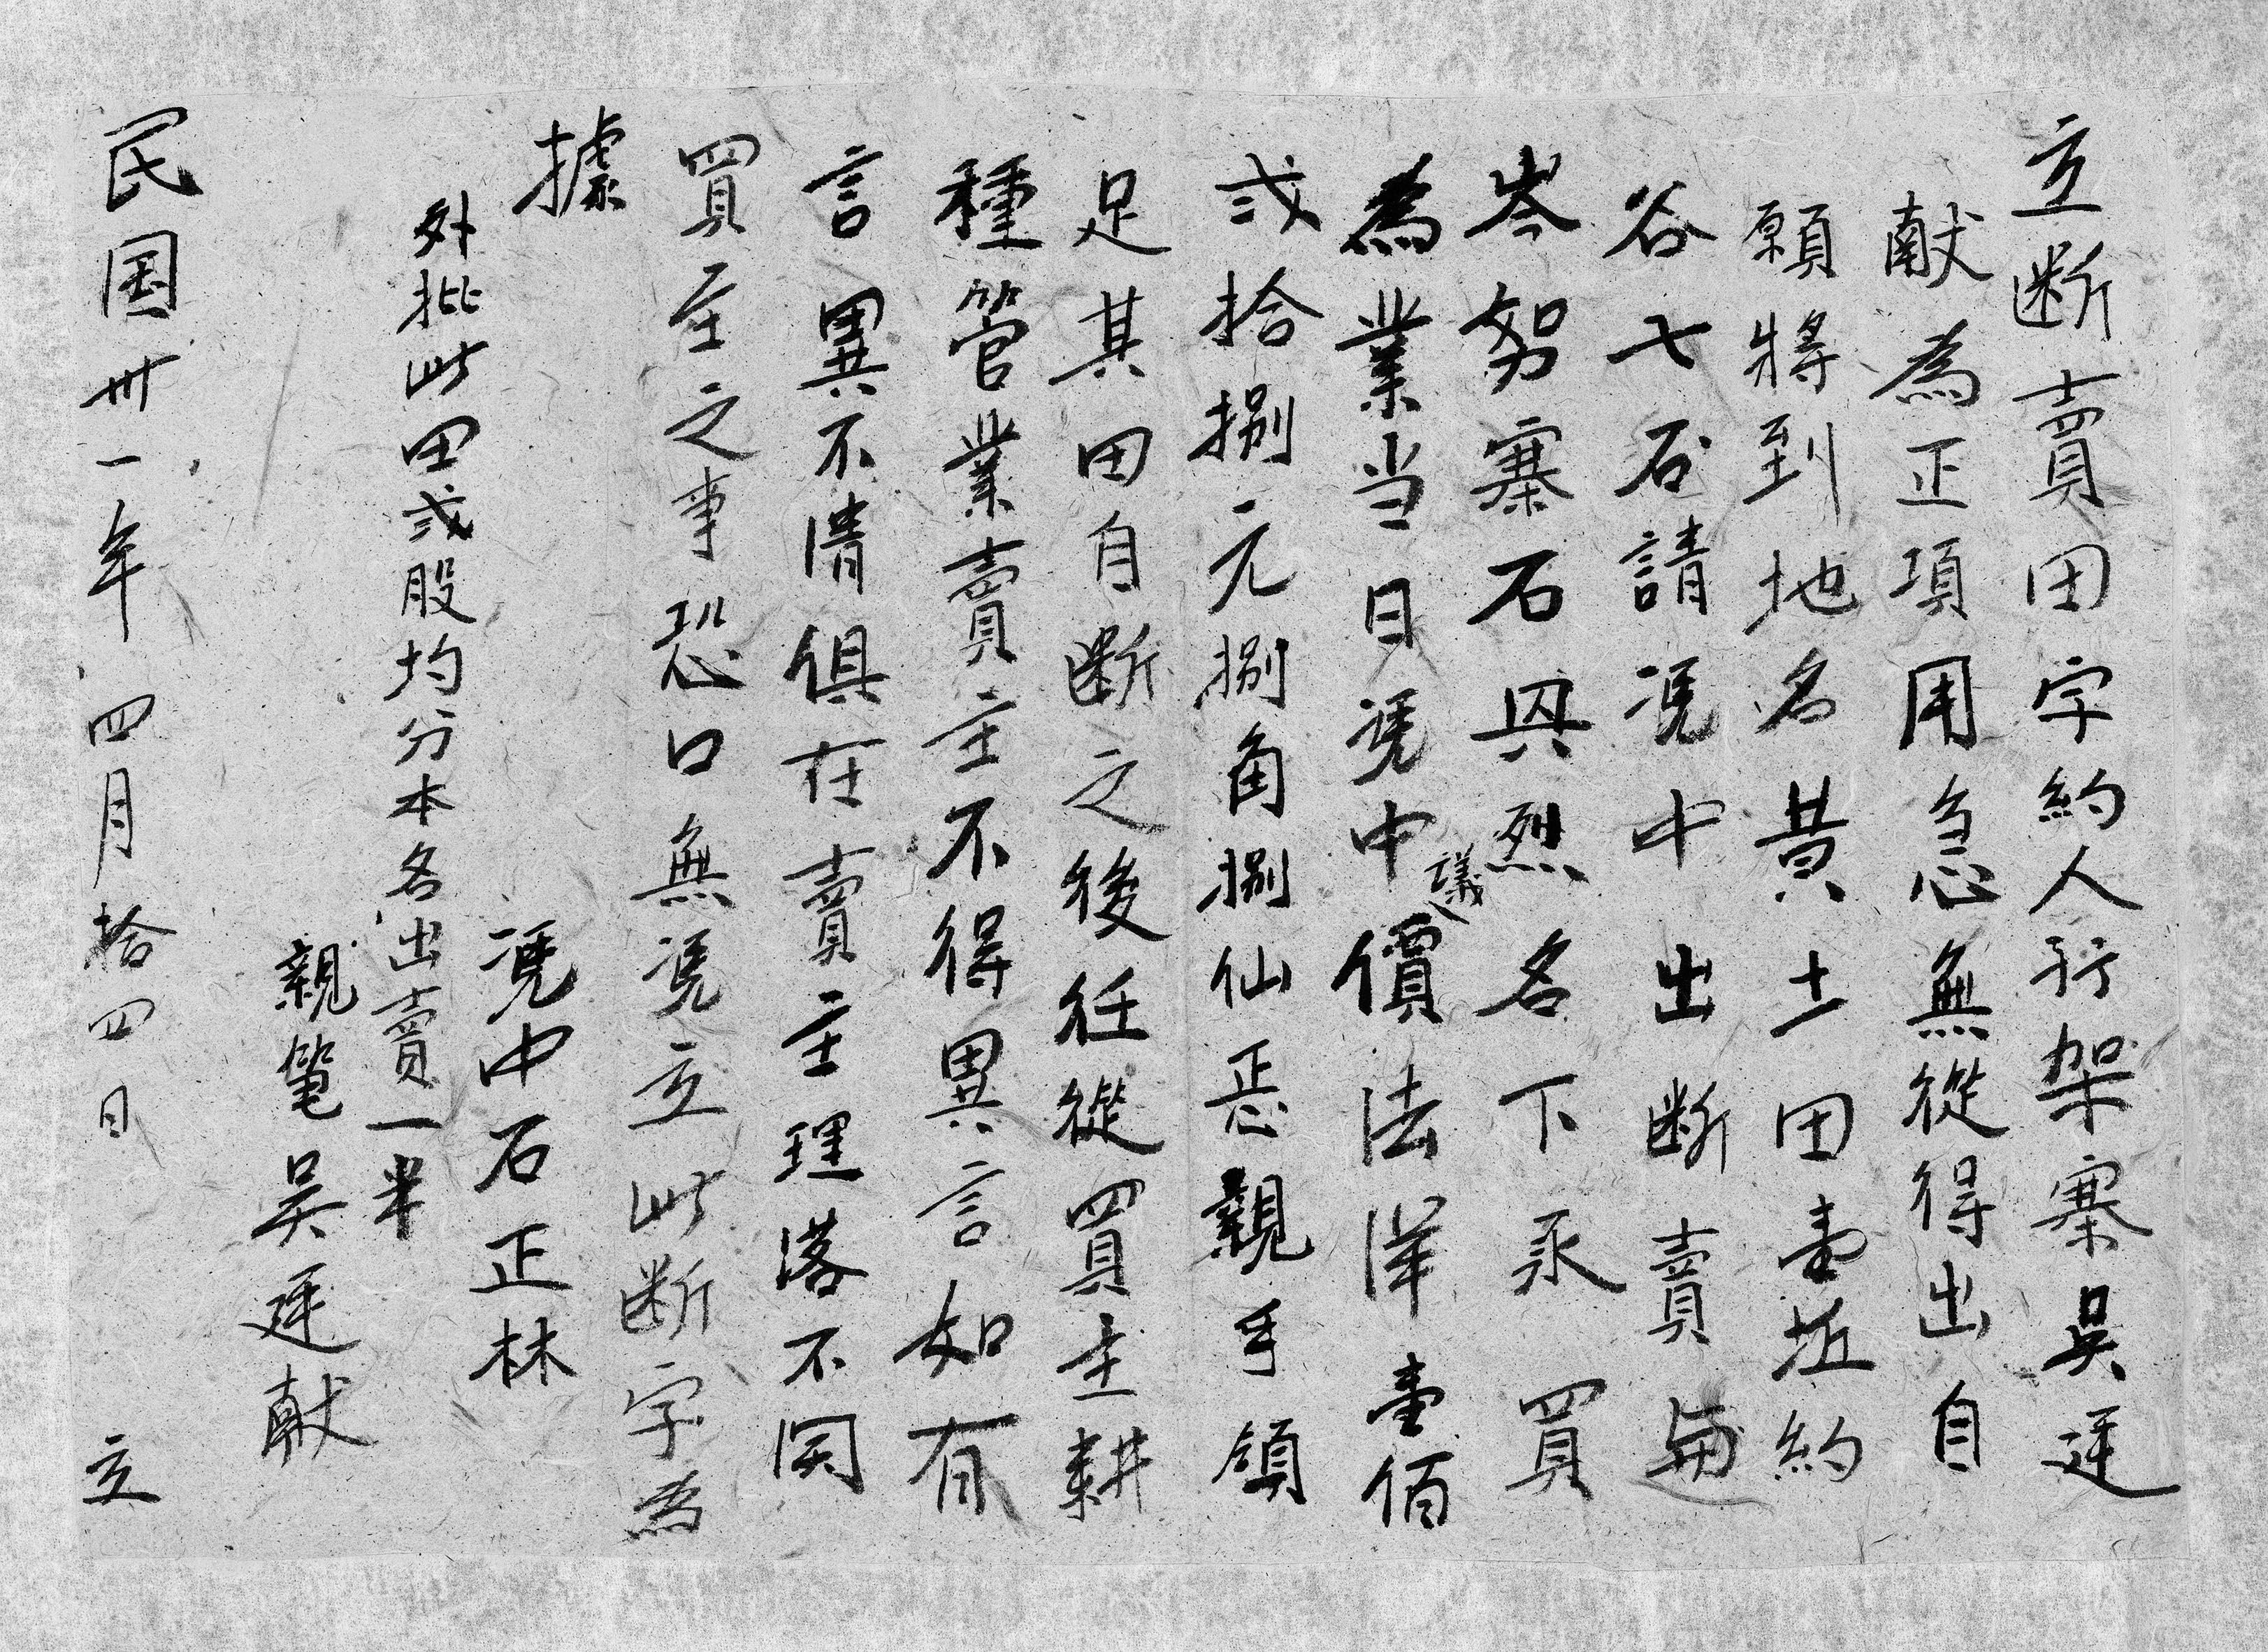 立断賣田字約人行架寨吴廷
献為正項用急無從得出自
願將到地名黄土田壹坵約
谷七石請凴中出断賣與
岑努寨石與烈名下永買
為業当日凴中議價法洋壹佰
弍拾捌元捌角捌仙正親手領
足其田自断之後任從買主耕
種管業賣主不得異言如有
言異不清俱在賣主理落不関
買主之事恐口無凴立此断字為
據
凴中石正林
外批此田弍股均分本名出賣一半
親筆吴廷献
民国卅一年四月拾四日 立